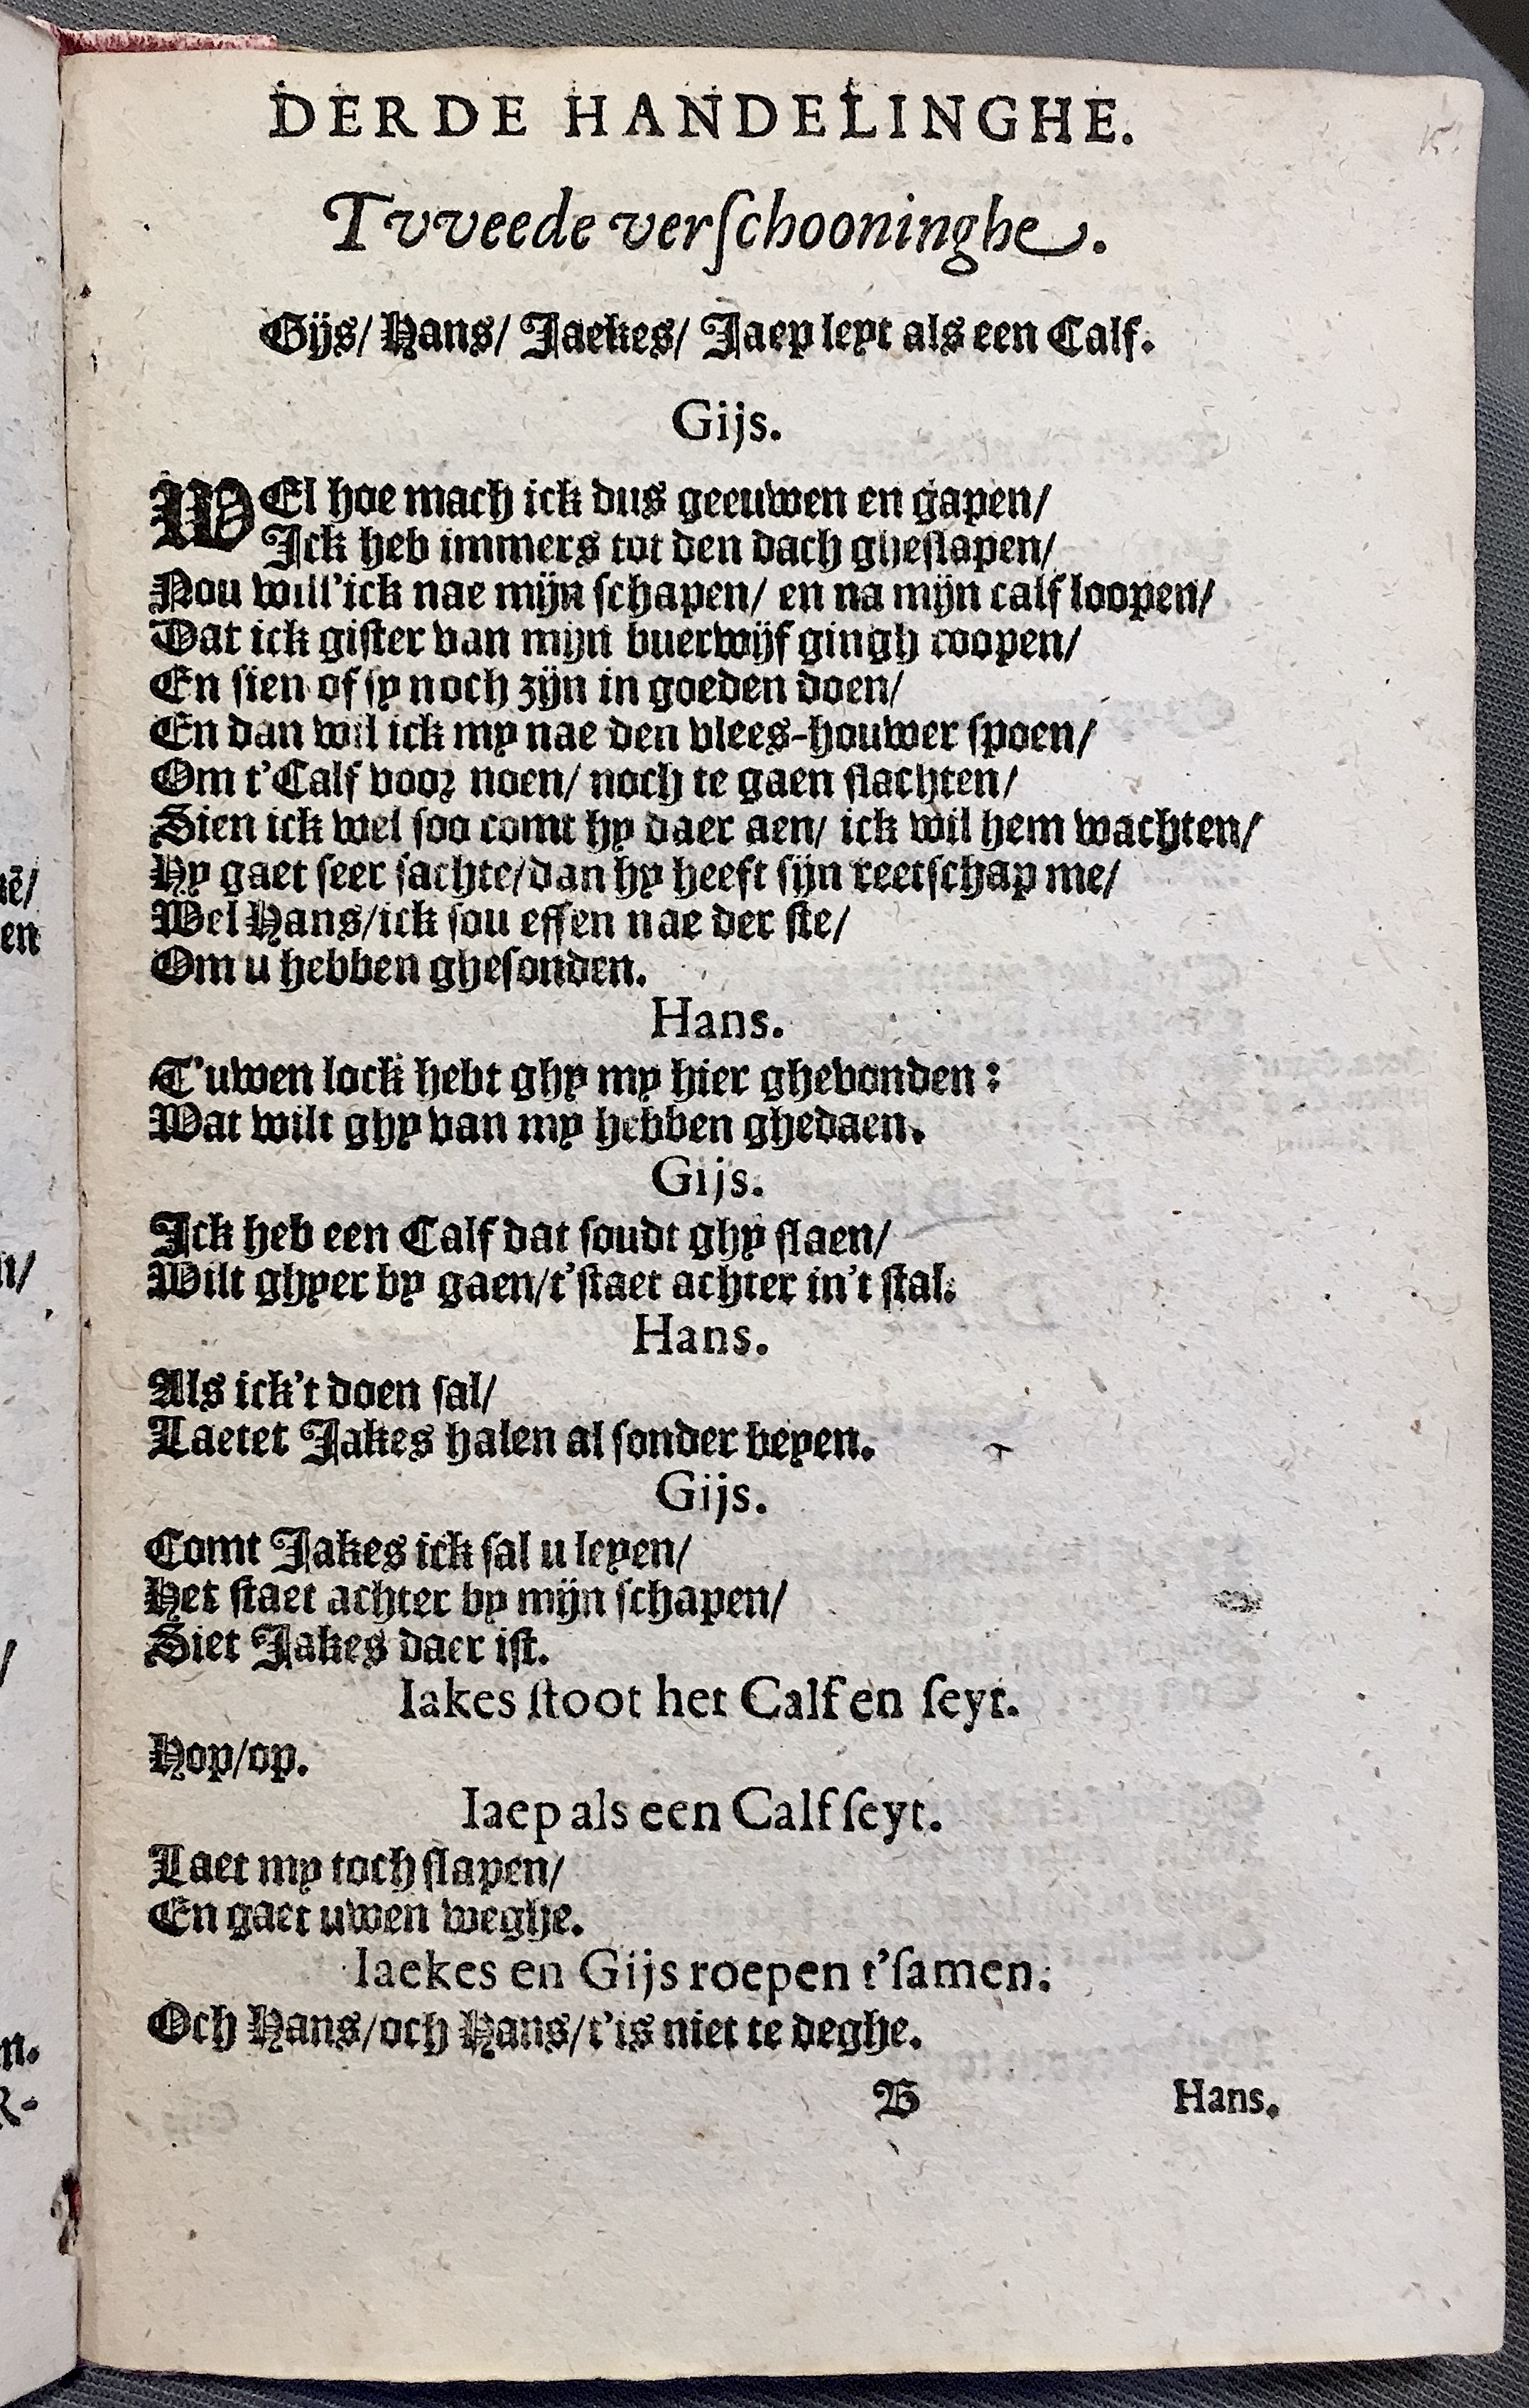 DERDE HANDELINGHE.
Tvveede verſchooninghe.
Gijs/ Hans/ Jaekes/ Jaep leyt als een Calf.
Gijs.
WEl hoe mach ick dus geeuwen en gapen/
Ick heb immers tot den dach gheſlapen/
Nou will'ick nae mijn ſchapen/ en na mijn calf loopen/
Dat ick giſter van mijn buerwijf gingh coopen/
En ſien of ſy noch zijn in goeden doen/
En dan wil ick my nae den vlees-houwer ſpoen/
Om t'Calf voor noen/ noch te gaen ſlachten/
Sien ick wel ſoo comt hy daer aen/ ick wil hem wachten/
Hy gaet ſeer ſachte/dan hy heeft ſijn reetſchap me/
Wel Hans/ick ſou effen nae der ſte/
Om u hebben gheſonden.
Hans.
T'uwen lock hebt ghy my hier ghevonden:
Wat wilt ghy van my hebben ghedaen.
Gijs.
Ick heb een Calf dat ſoudt ghy ſlaen/
Wilt ghyer by gaen/t'ſtaet achter in't ſtal.
Hans.
Als ick't doen ſal/
Laetet Jakes halen al ſonder beyen.
Gijs.
Comt Jakes ick ſal u leyen/
Het ſtaet achter by mijn ſchapen/
Siet Jakes daer iſt.
Iakes ſtoot het Calf en ſeyt.
Hop/op.
Iaep als een Calf ſeyt.
Laet my toch ſlapen/
En gaet uwen weghe.
Iaekes en Gijs roepen t'ſamen.
Och Hans/och Hans/t'is niet te deghe.
B Hans.